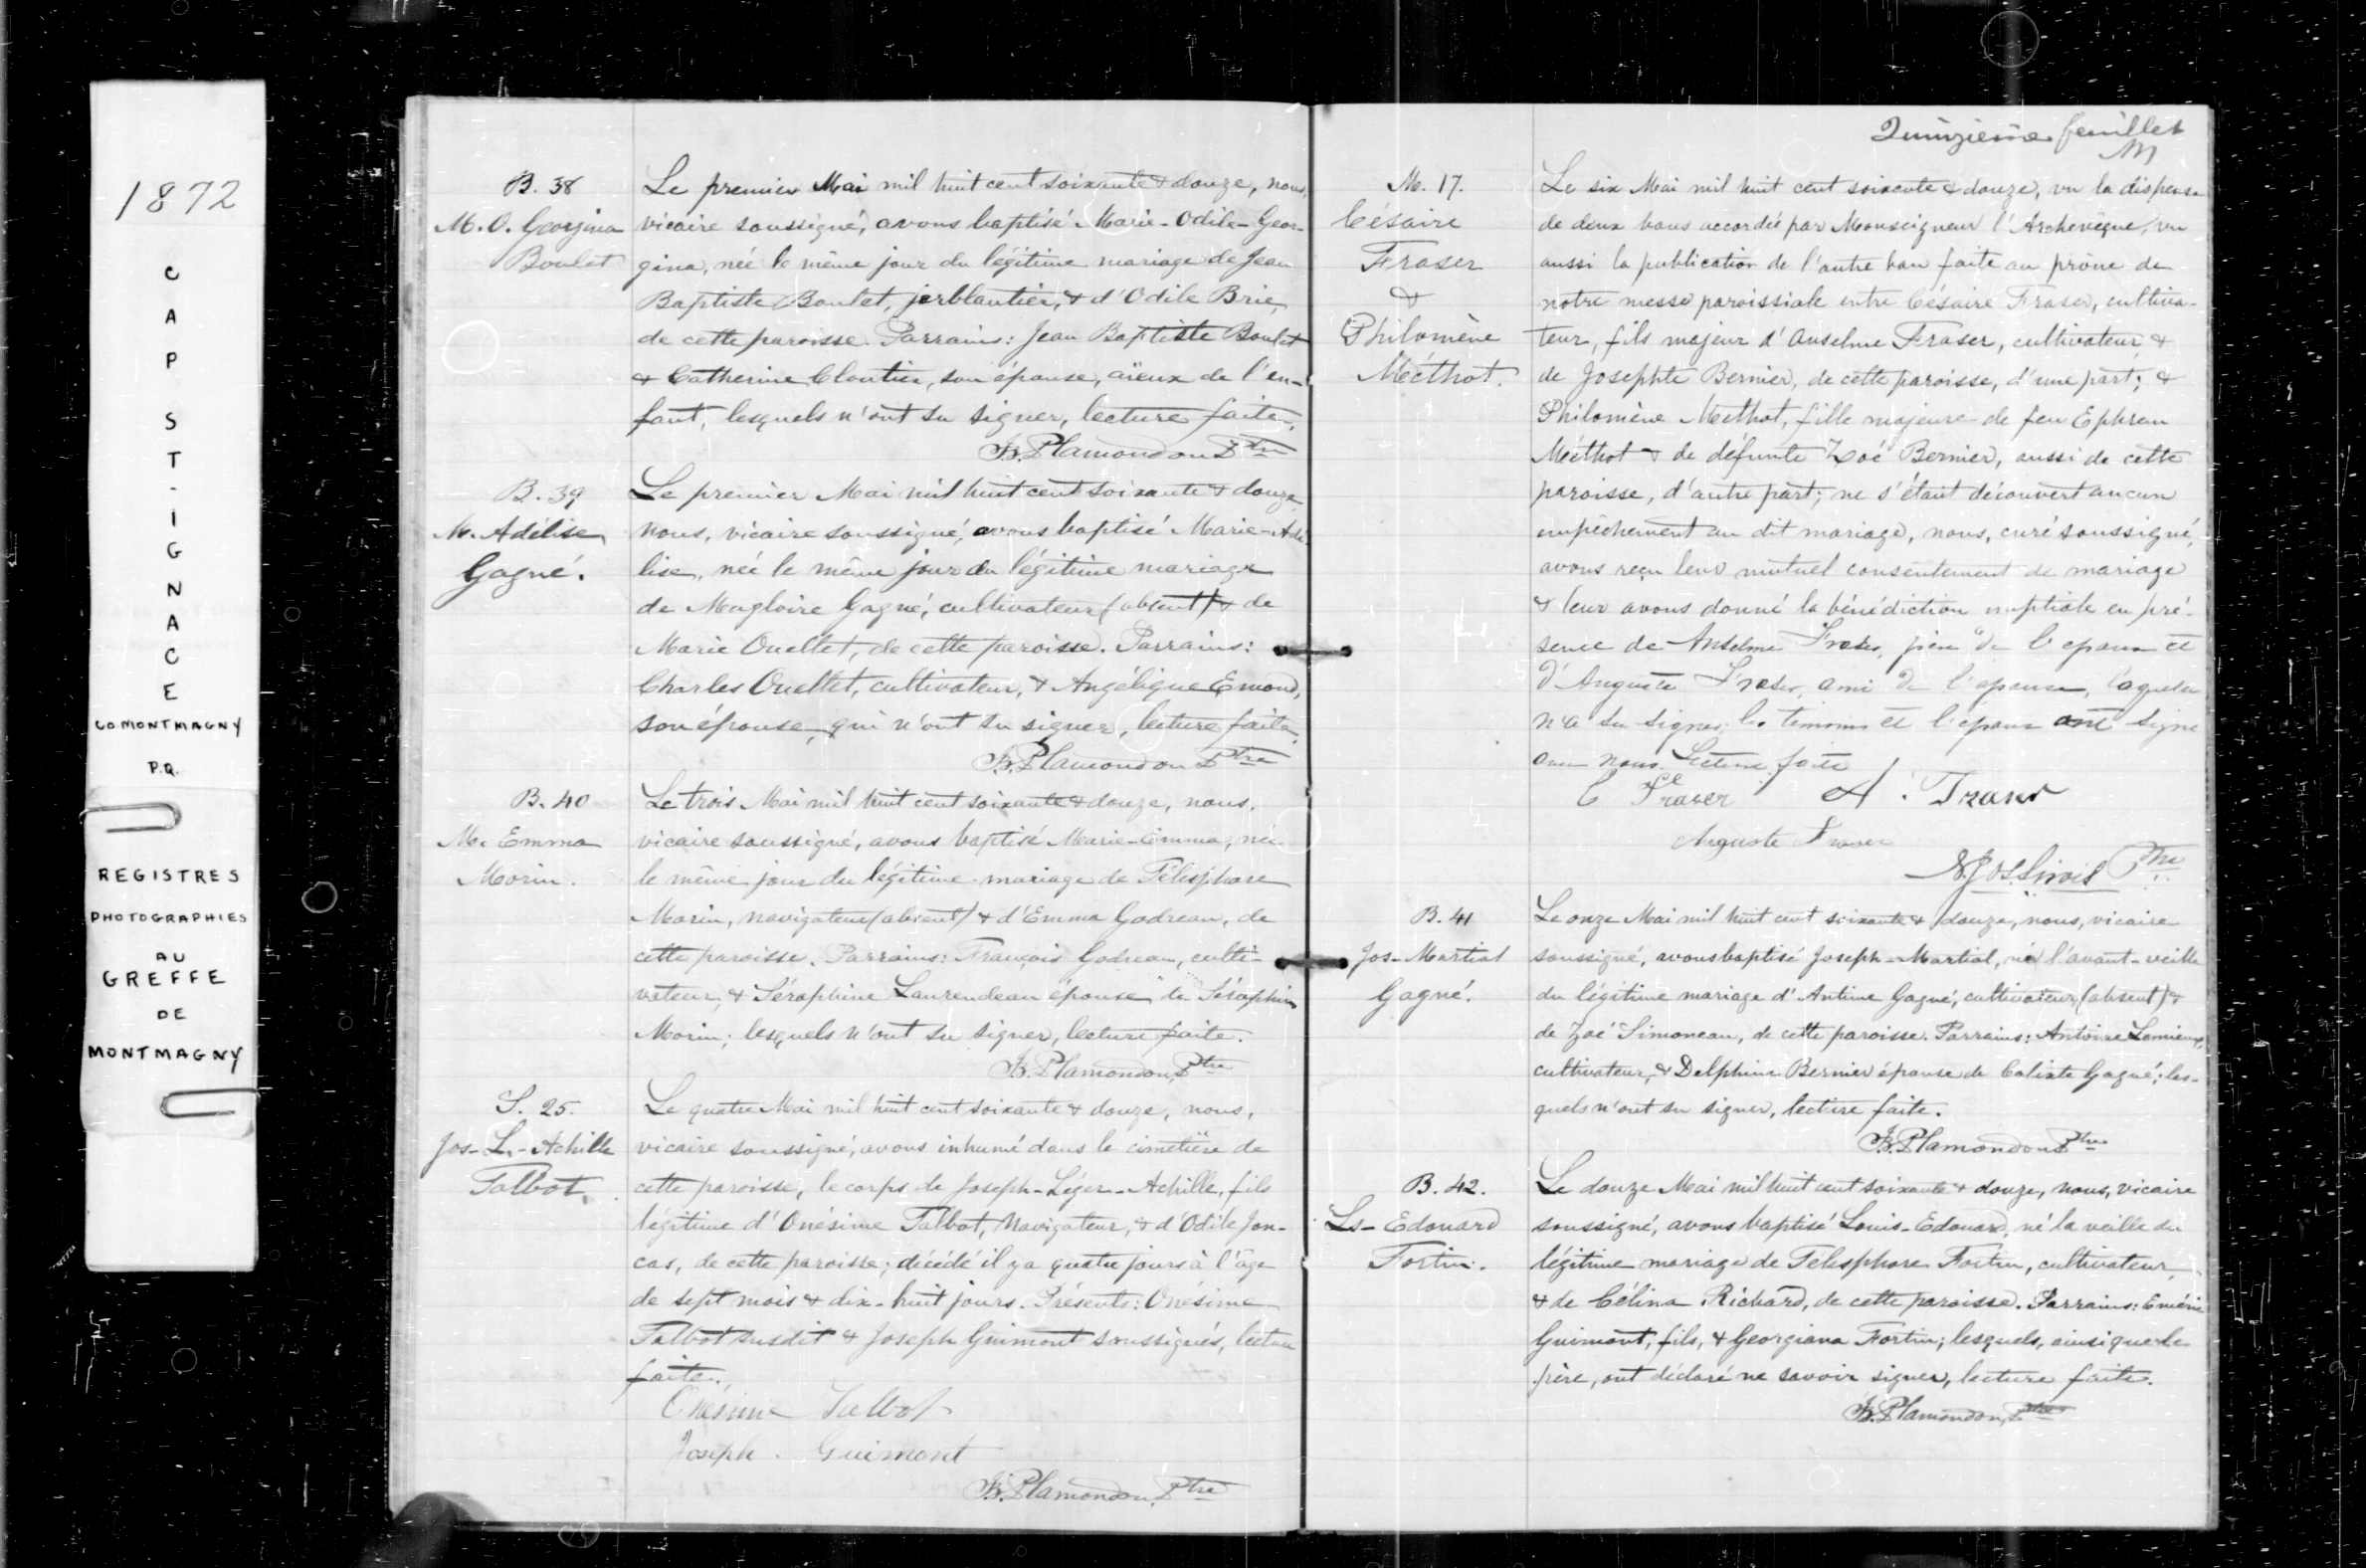 1872
CAP ST-IGNACE
CO MONTMAGNY
P.Q.
REGISTRES
PHOTOGRAPHIES
AU
GREFFE
DE
MONTMAGNY
B. 38
M. O. Georgina
Boulet
Le premier Mai mil huit cent soixante & douze, nous,
vicaire soussigné, avons baptisé Marie-Odile-Geor-
gina, née le même jour du légitime mariage de Jean
Baptiste Boulet, ferblantier, & d'Odile Brie,
de cette paroisse. Parrains: Jean Baptiste Boulet
& Catherine Cloutier, son épouse, aïeux de l'en-
fant, lesquels n'ont su signer, lecture faite.
B. Plamondon Ptre
B. 39
M. Adélise
Gagné.
Le premier Mai mil huit cent soixante & douze
nous, vicaire soussigné, avons baptisé Marie-Adé
lise, née le même jour du légitime mariage
de Magloire Gagné, cultivateur (absent) & de
Marie Ouellet, de cette paroisse. Parrains:
Charles Ouellet, cultivateur, & Angélique Emond,
son épouse, qui n'ont su signer, lecture faite.
B. Plamondon Ptre
B. 40
M. Emma
Morin.
Le trois Mai mil huit cent soixante & douze, nous,
vicaire soussigné, avons baptisé Marie-Emma, née
le même jour du légitime mariage de Télesphore
Morin, navigateur (absent) & d'Emma Godreau, de
cette paroisse. Parrains: François Godreau, culti-
vateur, & Séraphine Laurendeau épouse de Séraphin
Morin; lesquels n'ont su signer, lecture faite.
B. Plamondon, Ptre
S. 25.
Jos-L.-Achille
Talbot.
Le quatre Mai mil huit cent soixante & douze, nous,
vicaire soussigné, avons inhumé dans le cimetière de
cette paroisse, le corps de Joseph-Léger-Achille, fils
légitime d'Onésime Talbot, Navigateur, & d'Odile Jon-
cas, de cette paroisse; décédé il y a quatre jours à l'âge
de sept mois & dix-huit jours. Présents: Onésime
Talbot susdit & Joseph Guimont soussignés, lecture
faite.
Onésime Talbot
Joseph Guimont
B. Plamondon, Ptre
Quinzième feuillet
M. 17.
Césaire
Fraser
&
Philomène
Méthot.
Le six Mai mil huit cent soixante & douze, vu la dispense
de deux bans accordée par Monseigneur l'Archevêque, vu
aussi la publication de l'autre ban faite au prône de
notre messe paroissiale entre Césaire Fraser, cultiva-
teur, fils majeur d'Anselme Fraser, cultivateur, &
de Josephte Bernier, de cette paroisse, d'une part; &
Philomène Méthot, fille majeure de feu Ephrem
Méthot & de défunte Zoé Bernier, aussi de cette
paroisse, d'autre part; ne s'étant découvert aucun
empêchement au dit mariage, nous, curé soussigné,
avons reçu leur mutuel consentement de mariage
& leur avons donné la bénédiction nuptiale en pré-
sence de Anselme Fraser, père de l'époux et
d'Auguste Fraser, ami de l'épouse, laquelle
n'a su signer. les témoins et l'époux ont signé
avec nous. Lecture faite
C Fraser A. Fraser
Auguste Fraser
N. Jos. Sirois Ptre
B. 41
Jos-Martial
Gagné.
Le onze Mai mil huit cent soixante & douze, nous, vicaire
soussigné, avons baptisé Joseph-Martial, né l'avant-veille
du légitime mariage d'Antime Gagné, cultivateur (absent) &
de Zoé Simoneau, de cette paroisse. Parrains: Antoine Lemieux,
cultivateur, & Delphine Bernier épouse de Calixte Gagné; les-
quels n'ont su signer, lecture faite.
B. Plamondon Ptre
B. 42.
Ls-Edouard
Fortin.
Le douze Mai mil huit cent soixante & douze, nous, vicaire
soussigné, avons baptisé Louis-Edouard, né la veille du
légitime mariage de Télesphore Fortin, cultivateur,
& de Célina Richard, de cette paroisse. Parrains: Emérie
Guimont, fils, & Georgiana Fortin; lesquels, ainsi que le
père, ont déclaré ne savoir signer, lecture faite.
B. Plamondon, Ptre